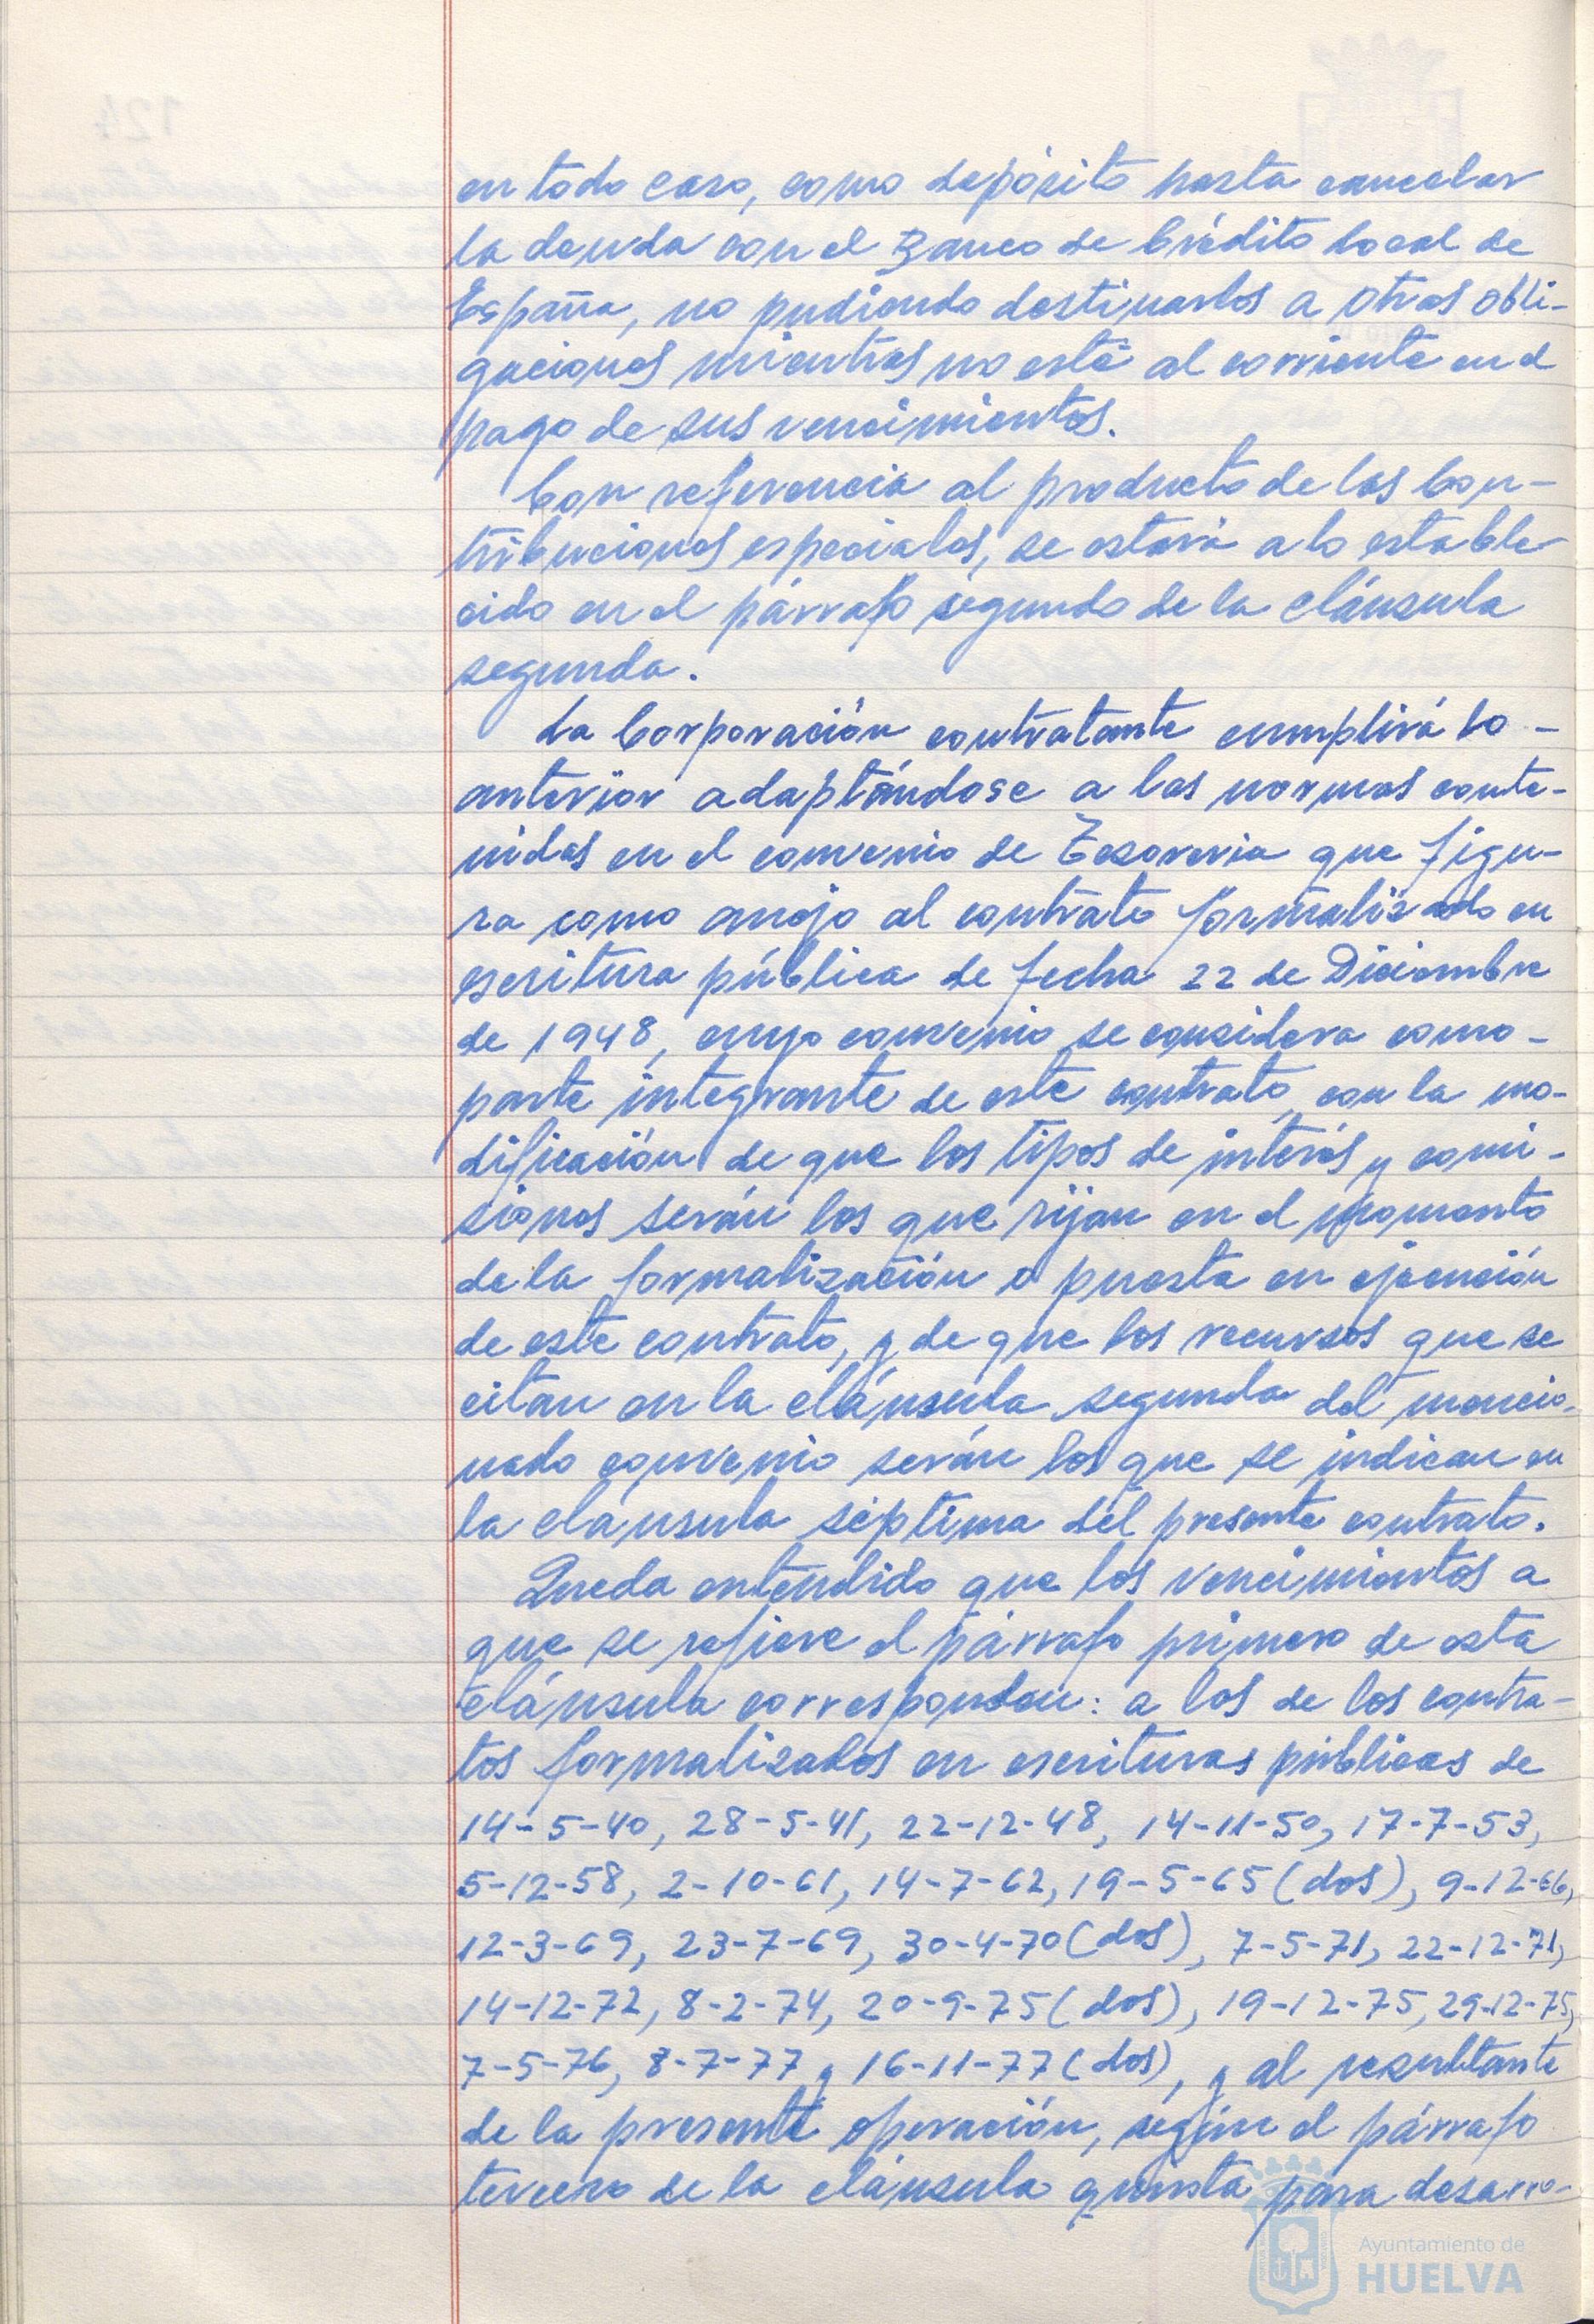 en todo caso, como depósito hasta cancelar
la deuda con el Banco de Crédito Local de
España, no pudiendo destinarlos a otras obli-
gaciones mientras no esté al corriente en el
pago de sus vencimientos.
Con referencia al producto de las Con-
tribuciones especiales, se estará a lo estable-
cido en el párrafo segundo de la cláusula
segunda.
La Corporación contratante cumplirá lo -
anterior adaptándose a las normas conte-
nidas en el convenio de Tesorería que figu-
ra como anejo al contrato formalizado en
escritura pública de fecha 22 de Diciembre
de 1948, cuyo convenio se considera como -
parte integrante de este contrato, con la mo-
dificación de que los tipos de interés y comi-
siones serán los que rijan en el momento
de la formalización o puesta en ejecución
de este contrato, y de que los recursos que se
citan en la cláusula segunda del mencio-
nado convenio serán los que se indican en
la cláusula séptima del presente contrato.
Queda entendido que los vencimientos a
que se refiere el párrafo primero de esta
cláusula corresponden: a los de los contra-
tos formalizados en escrituras públicas de
14-5-40, 28-5-41, 22-12-48, 14-11-50, 17-7-53,
5-12-58, 2-10-61, 14-7-62, 19-5-65 (dos), 9-12-66,
12-3-69, 23-7-69, 30-4-70 (dos), 7-5-71, 22-12-71,
14-12-72, 8-2-74, 20-9-75 (dos), 19-12-75, 29-12-75,
7-5-76, 8-7-77 y 16-11-77 (dos), y al resultante
de la presente operación, según el párrafo
tercero de la cláusula quinta para desarro-
Ayuntamiento de
HUELVA